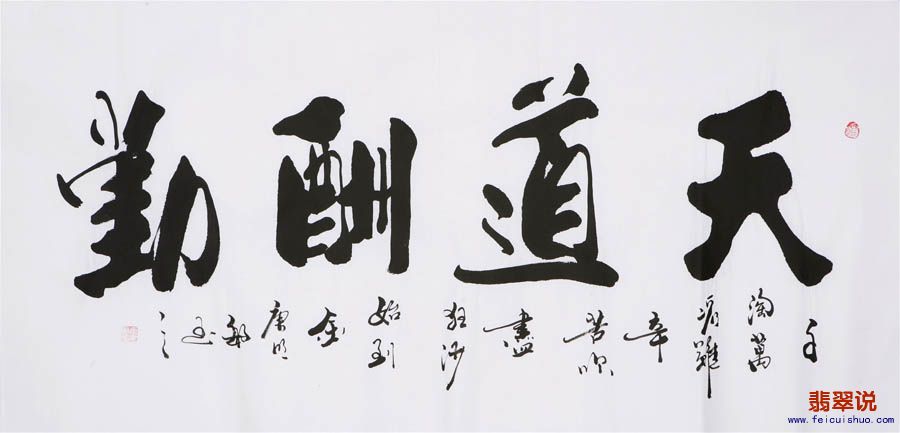 天道酬勤
千淘萬漉雖辛苦吹盡狂沙始到金
翡翠说
www.feicuishuo.com